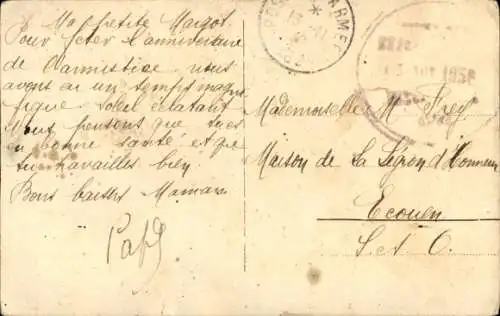 Ma petite Margot.
Pour feter l'anniversaire
de l'armistice, nous
avons eu un temps magni
fique, soleil eclatant
Nous pensons que tu es
en bonne santé et que
tu travailles bien.
Bons baisers Maman
Papa
Mademoiselle M
Maison de La Légion d'Honneur
Ecouen
S. et O.